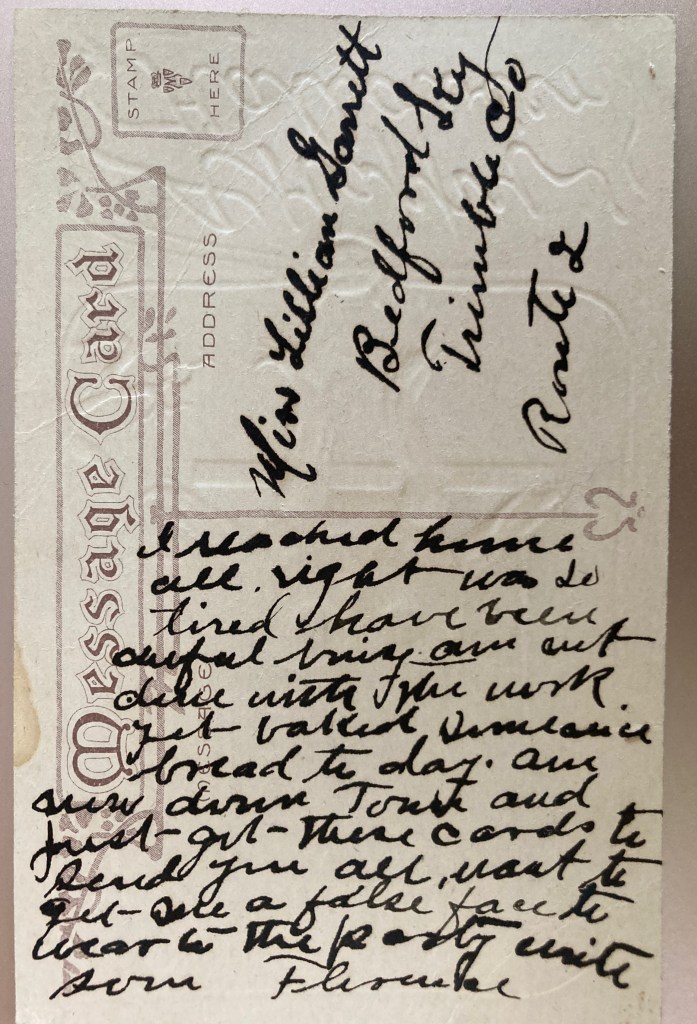 STAMP
HERE
Message Card
ADDRESS
MESSAGE
Miss Lillian Garrett
Bedford Ky
Trimble Co
Route 2
52
I reached home
all right was so
tired have been
awful busy am not
done with the work
yet baked
bread to day. am
now down Town and
just got these cards to
send you all, want to
get me a false face to
wear to the party write
soon Florence